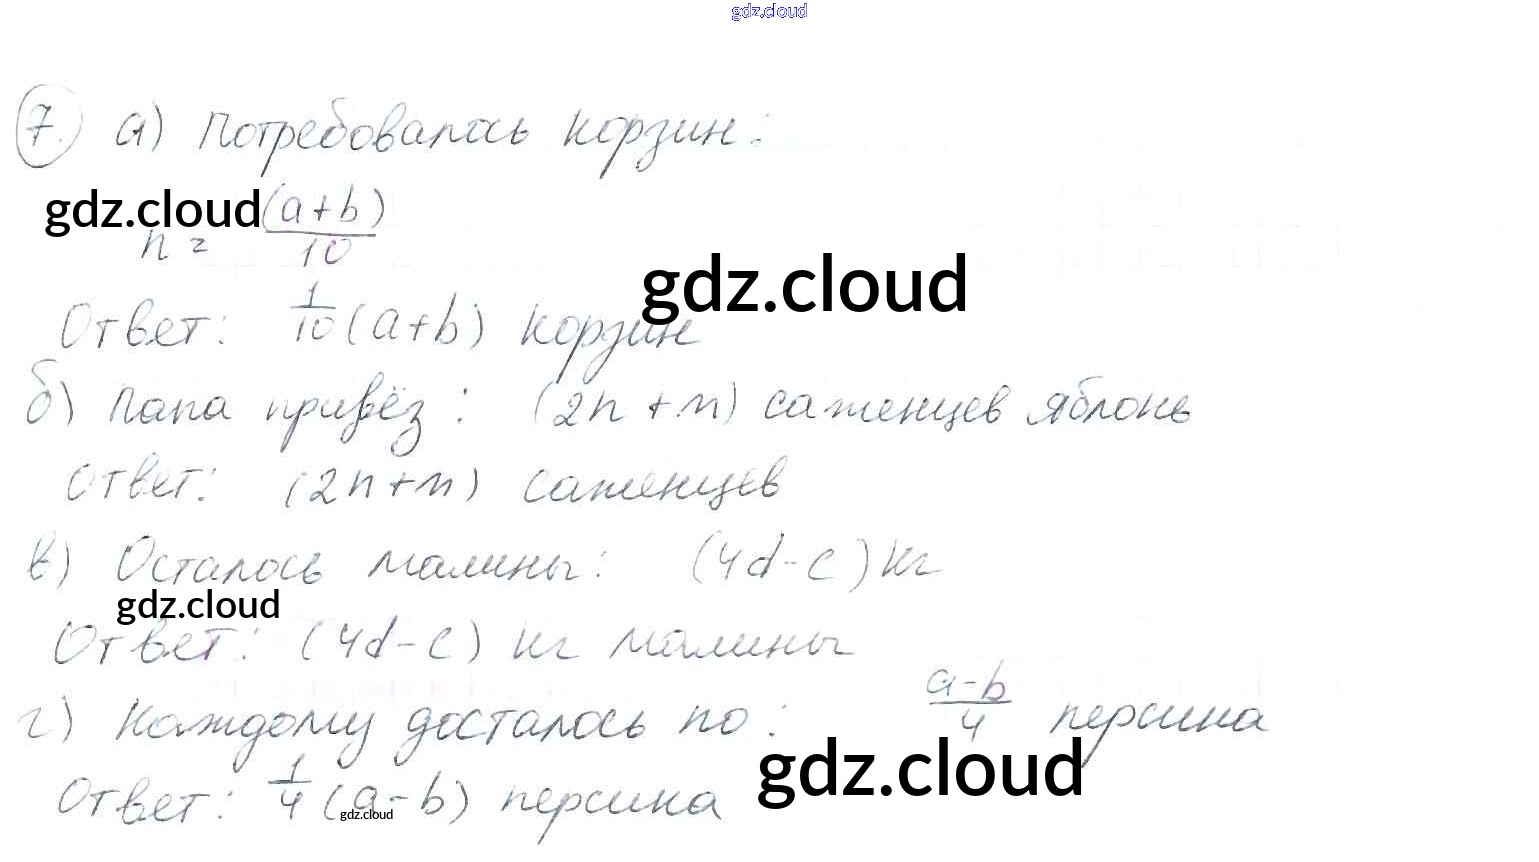 gdz.cloud
7. а) Потребовалось корзин:
gdz.cloud
n = (a+b)/10
gdz.cloud
Ответ: 1/10 (a+b) корзин
б) Папа привёз: (2n+m) саженцев яблонь
Ответ: (2n+m) саженцев
в) Осталось малины: (4d-c) кг
gdz.cloud
Ответ: (4d-c) кг малины
г) Каждому досталось по: a-b/4 персика
gdz.cloud
Ответ: 1/4 (a-b) персика
gdz.cloud